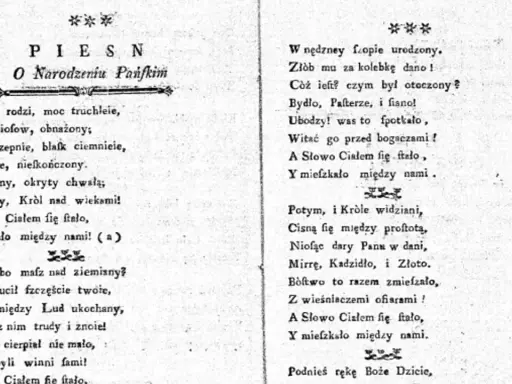 PIESN
O Narodzeniu Pańſkim
rodzi, moc truchleie,
ioſow, obnażony;
zepnie, blaſk ciemnieie,
e, nieſkończony.
ny, okryty chwałą;
y, Król nad wiekami!
Ciałem ſię ſtało,
ło między nami! (a)
bo maſz nad ziemiany?
ucił ſzczęście twoie,
między Lud ukochany,
z nim trudy i znoie!
cierpiał nie mało,
yli winni ſami!
Ciałem ſię ſtało.
W nędzney ſzopie urodzony.
Złòb mu za kolebkę dano!
Cóż ieſt? czym był otoczony?
Bydło, Paſterze, i ſiano!
Ubodzy! was to ſpotkało,
Witać go przed bogaczami!
A Słowo Ciałem ſię ſtało,
Y mieſzkało między nami.
Potym, i Króle widziani,
Cisną ſię między proſtotą,
Nioſąc dary Panu w dani,
Mirrę, Kadzidło, i Złoto.
Bòſtwo to razem zmieſzało,
Z wieśniaczemi ofiarami!
A Słowo Ciałem ſię ſtało,
Y mieſzkało między nami.
Podnieś rękę Boże Dziecie,